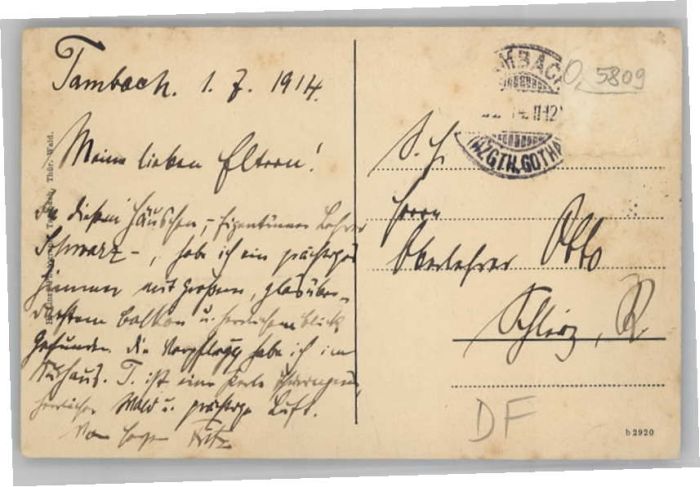 Tambach. 1. 7. 1914.
Meine lieben Eltern!
In diesem Häuschen, - Eigentümer Lehrer
Schwarz -, habe ich ein prächtiges
Zimmer mit großem, glasüber-
dachtem Balkon u. herrlichem Blick
gefunden. Die Verpflegg habe ich im
Kurhaus. T. ist eine Perle Thüringens,
herrlicher Wald u. prächtige Luft.
Fritz
Thür. Wald.
MBACH
11-12
HZGTH. GOTHA
5809
S. H.
Herrn
Oberlehrer Otto
Schleiz, R.
DF
b 2920